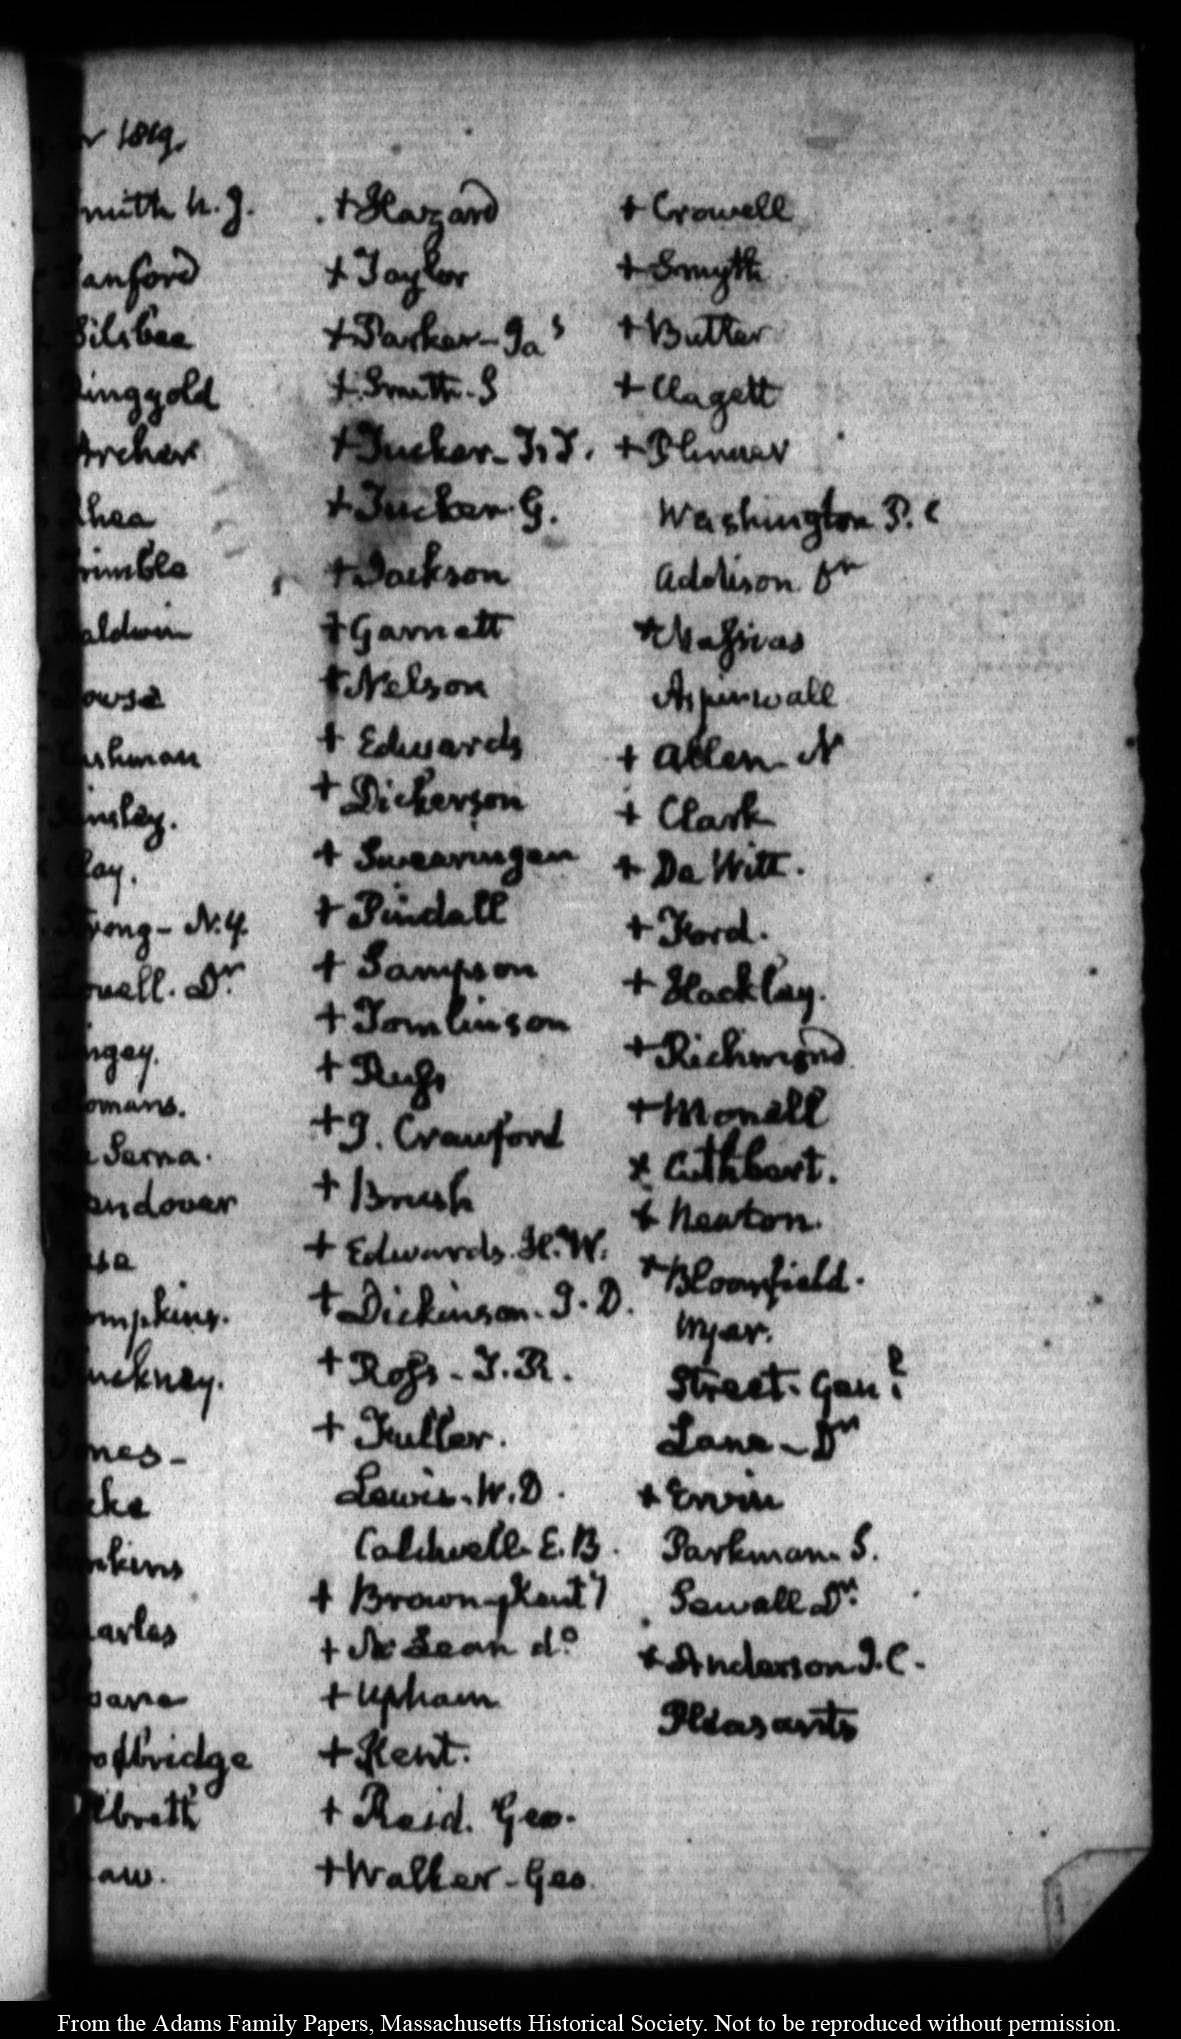 1819.
Smith N. J.
Sanford
Silsbee
Ringgold
Archer
Rhea
Trimble
Baldwin
Dowse
Cushman
Kinsley.
Clay.
Strong - N. Y.
Lovell. Dr.
Tingey.
Homans.
La Serna.
Vandover
Tompkins.
Pinckney.
Jones -
Cocke
Quarles
Sloane
Woodbridge
+ Hazard
+ Taylor
+ Parker - Jas
+ Smith. S
+ Tucker - T. T.
+ Tucker. G.
+ Jackson
+ Garnett
+ Nelson
+ Edwards
+ Dickerson
+ Swearingen
+ Pindall
+ Sampson
+ Tomlinson
+ Rugs
+ J. Crawford
+ Brush
+ Edwards. H. W.
+ Dickinson. J. D.
+ Ross - T. R.
+ Fuller.
Lewis. W. D.
Caldwell. E. B.
+ Brown - Kenty
+ Mc Lean do.
+ Upham
+ Kent.
+ Reid. Geo.
+ Walker - Geo
+ Crowell
+ Smyth
+ Butler
+ Clagett
+ Plumer
Washington P. C
Addison Dr
+ Massias
Aspinwall
+ Allen. N
+ Clark
+ De Witt.
+ Ford.
+ Hackley.
+ Richmond
+ Monell
+ Cuthbert.
+ Newton.
+ Bloomfield.
Myer.
Street. Genl.
Lane - Dr
+ Ervin
Parkman. S.
Sewall Dr.
+ Anderson J. C.
Pleasants
From the Adams Family Papers, Massachusetts Historical Society. Not to be reproduced without permission.